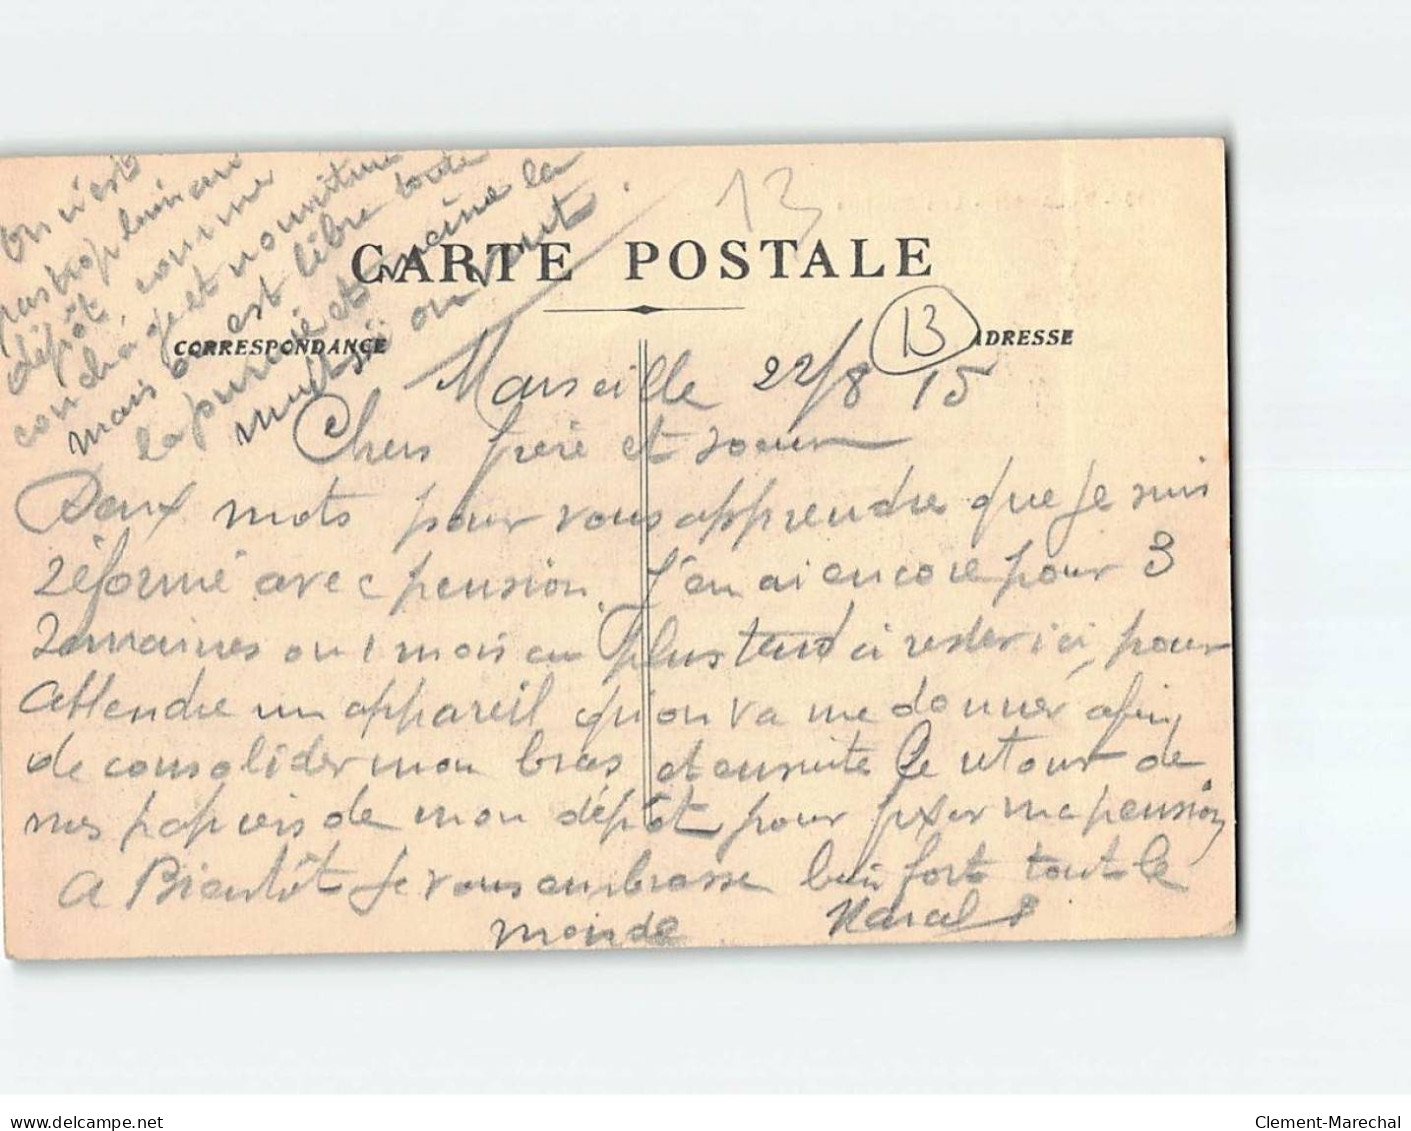 13
CARTE POSTALE
CORRESPONDANCE
13
ADRESSE
Marseille 22/8 15
Chers frère et soeur
Deux mots pour vous apprendre que je suis
réformé avec pension. J'en ai encore pour 3
semaines ou 1 mois au plus tard à rester ici, pour
attendre un appareil qu'on va me donner afin
de consolider mon bras et ensuite le retour de
mes papiers de mon dépôt pour fixer ma pension
A Bientôt Je vous embrasse bien fort tout le
monde
On n'est
pas trop bien au
dépôt, comme
couchage et nourriture
mais on est libre toute
la journée et même la
nuit si on veut
Clement-Marechal
delcampe.net